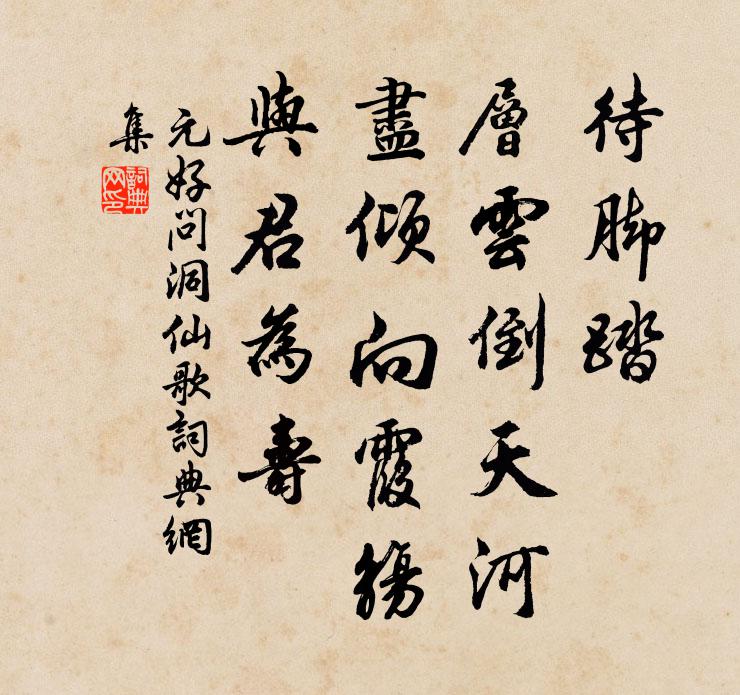 待脚踏
層雲倒天河
盡傾向霞觴
與君為壽
元好问洞仙歌詞典網
集
詞典
网印